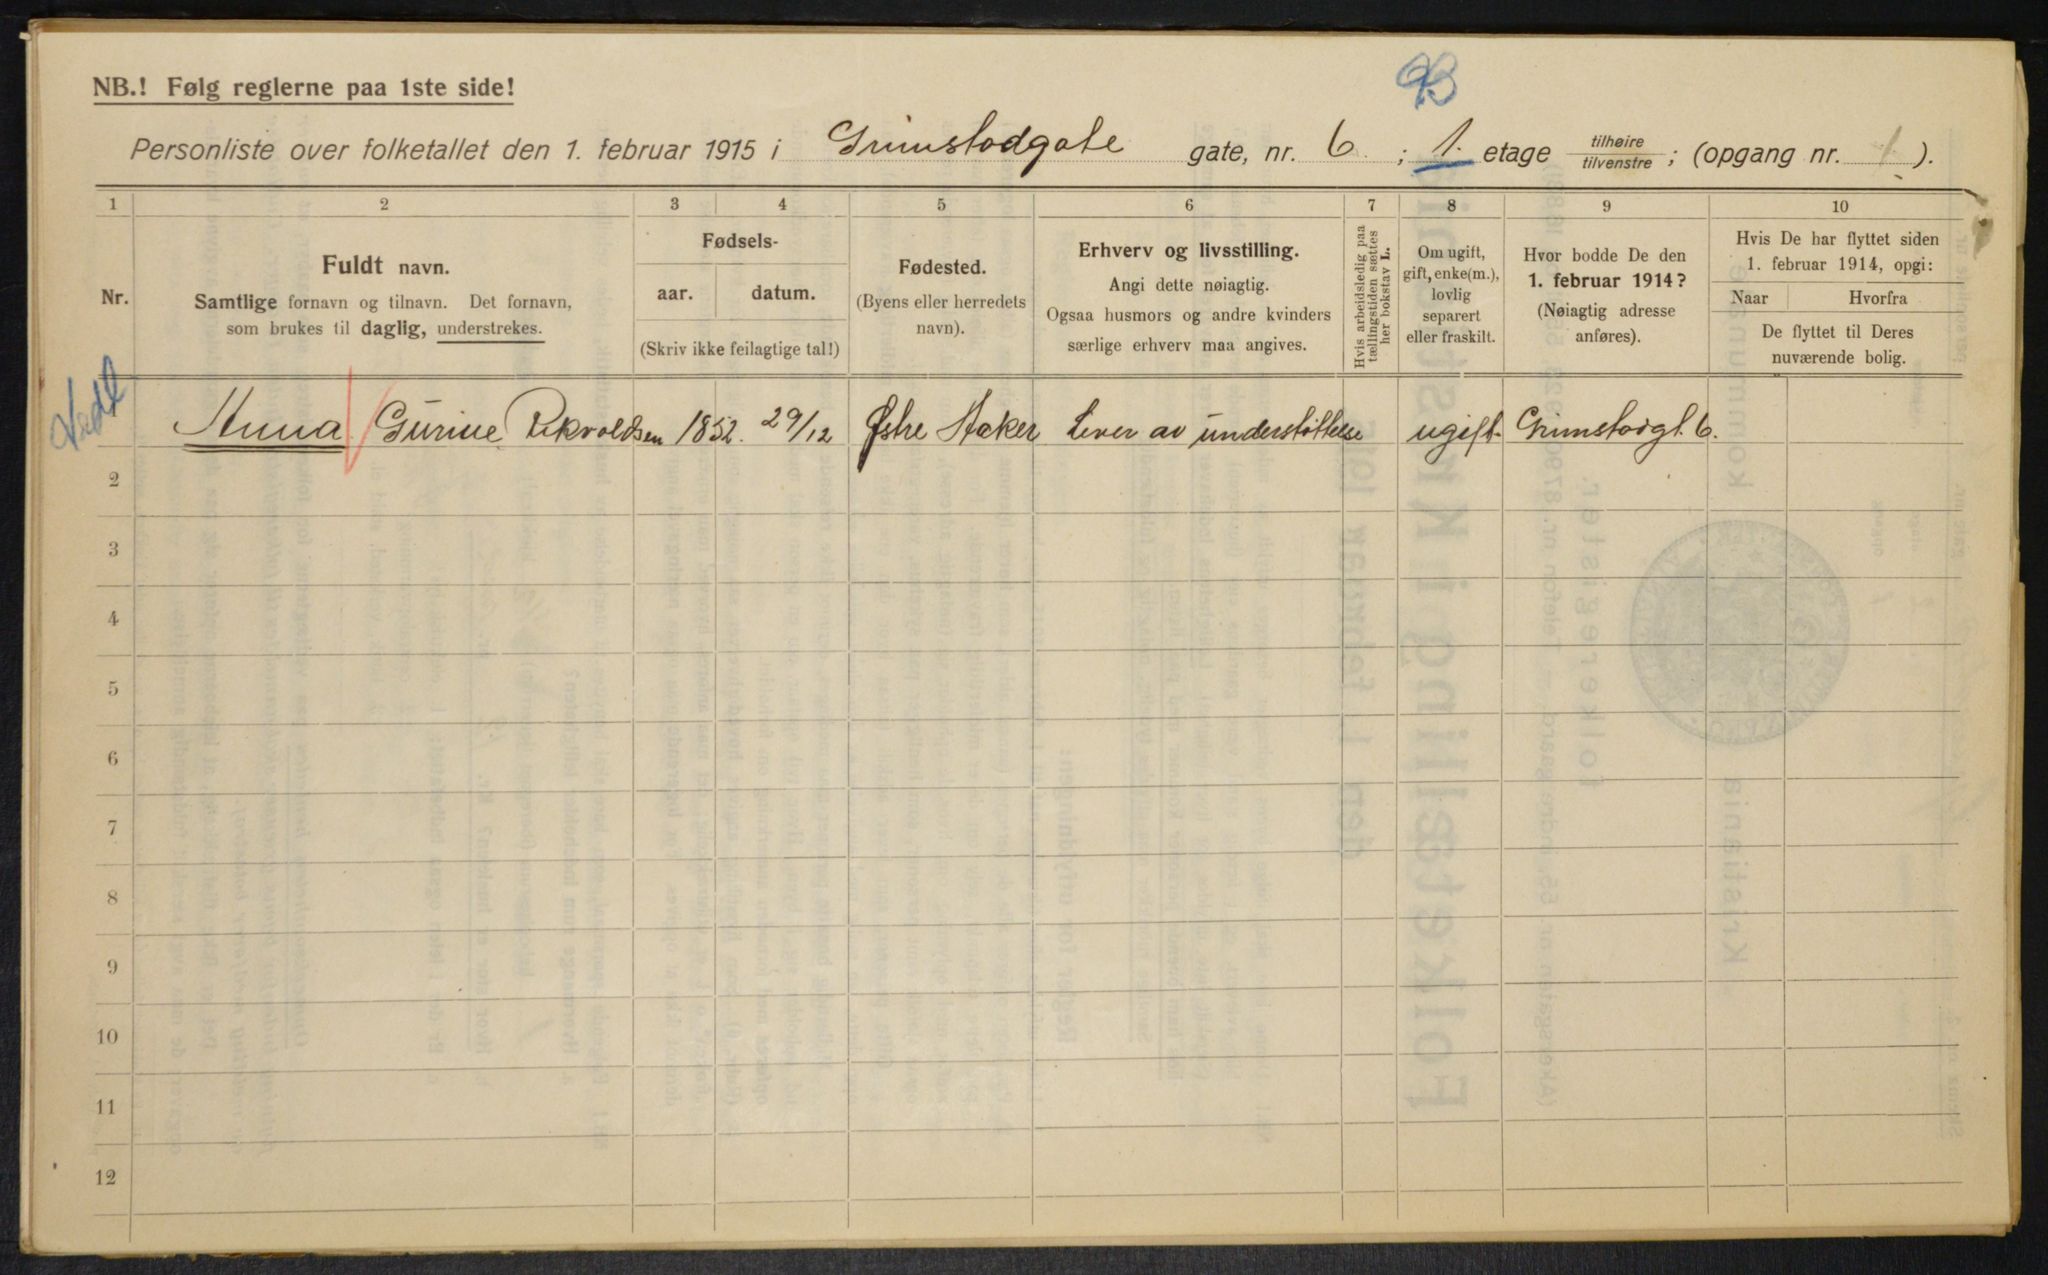 NB.! Følg reglerne paa 1ste side!
Personliste over folketallet den 1. februar 1915 i Grimstadgate gate, nr. 6 ; 1. etage tilhøire tilvenstre ; (opgang nr. 1 ).
1 2 3 4 5 6 7 8 9 10
Nr.
Fuldt navn.
Samtlige fornavn og tilnavn. Det fornavn,
som brukes til daglig, understrekes.
Fødsels-
aar. datum.
(Skriv ikke feilagtige tal!)
Fødested.
(Byens eller herredets
navn).
Erhverv og livsstilling.
Angi dette nøiagtig.
Ogsaa husmors og andre kvinders
særlige erhverv maa angives.
Hvis arbeidsledig paa
tællingstiden sættes
her bokstav L.
Om ugift,
gift, enke(m.),
lovlig
separert
eller fraskilt.
Hvor bodde De den
1. februar 1914?
(Nøiagtig adresse
anføres).
Hvis De har flyttet siden
1. februar 1914, opgi:
Naar Hvorfra
De flyttet til Deres
nuværende bolig.
Anna Gurine 1852. 29/12 Østre Aaker Lever av understøttelse ugift Grimstadgt. 6.
2
3
4
5
6
7
8
9
10
11
12